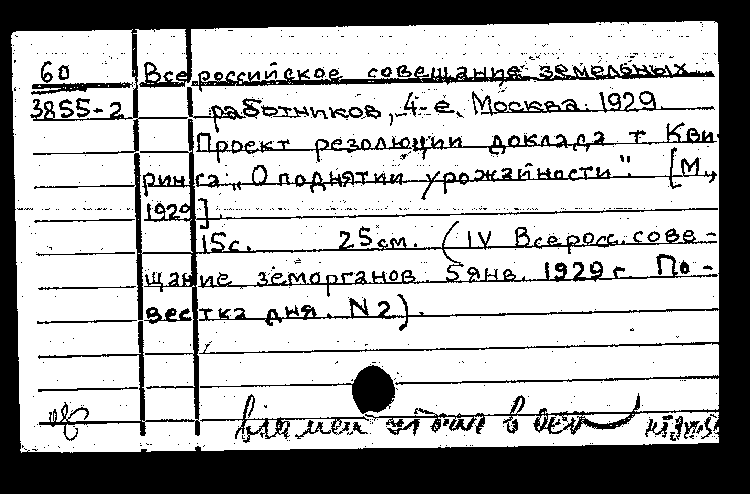 60 Всероссийское совещание земельных
3855-2 работников, 4-е, Москва. 1929.
Проект резолюции доклада т Кви
ринга: „О поднятии урожайности". [М.,
1929].
15с. 25см. (IV Всеросс. сове-
щание земорганов. 5янв. 1929г. По-
вестка дня. N2).